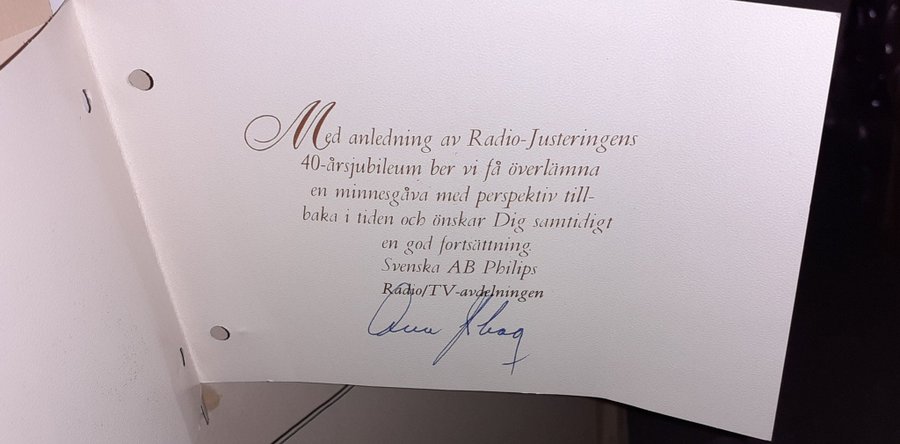 Med anledning av Radio-Justeringens
40-årsjubileum ber vi få överlämna
en minnesgåva med perspektiv till-
baka i tiden och önskar Dig samtidigt
en god fortsättning.
Svenska AB Philips
Radio/TV-avdelningen